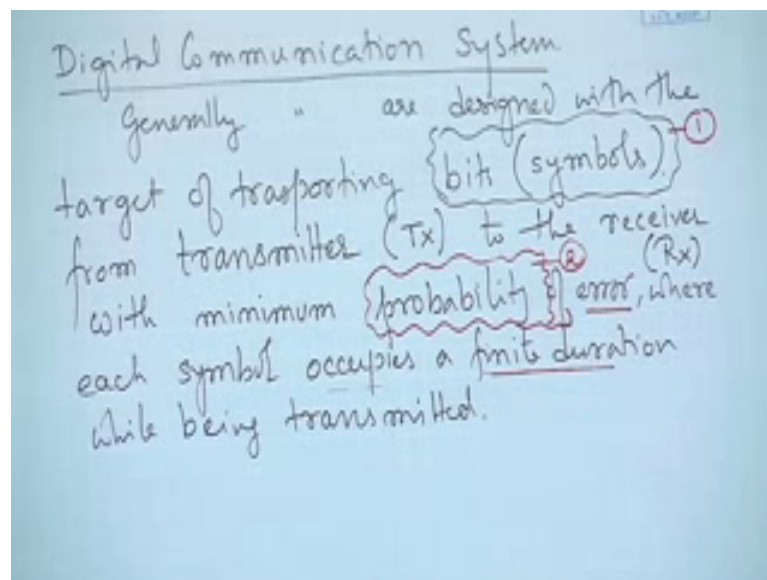 Digital Communication System
Generally " are designed with the
target of trasporting bits (symbols). 1
from transmitter (Tx) to the receiver
(Rx)
with minimum probability 2 of error, where
each symbol occupies a finite duration
while being transmitted.